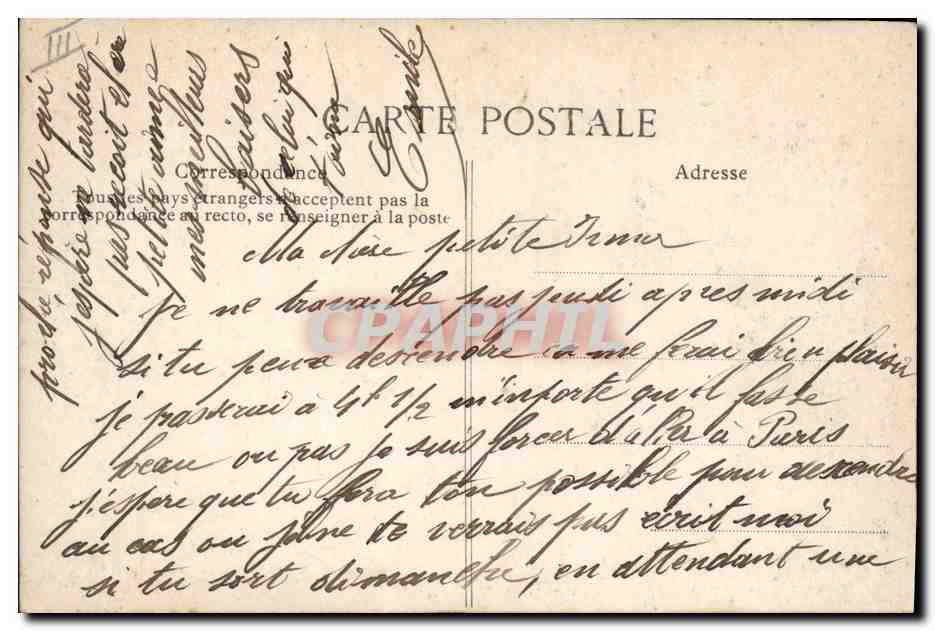 III
CARTE POSTALE
Correspondance
Adresse
Tous les pays étrangers n'acceptent pas la
correspondance au recto, se renseigner à la poste
Ma chère petite Irma
Je ne travaille pas jeudi apres midi
si tu peux descendre ça me ferai bien plaisir
je passerai à 4h 1/2 m'inporte qu'il fasse
beau ou pas je suis forcer d'aller à Paris
j'espere que tu fera ton possible pour descendre
au cas ou je ne te verrais pas écrit moi
si tu sort dimanche, en attendant une
prochè réponse qui
j'espère ne tardera
pas reçoit chère
petite amie
mes meilleurs
baisers
de celui qui
t'aime
Emile
CPAPHIL